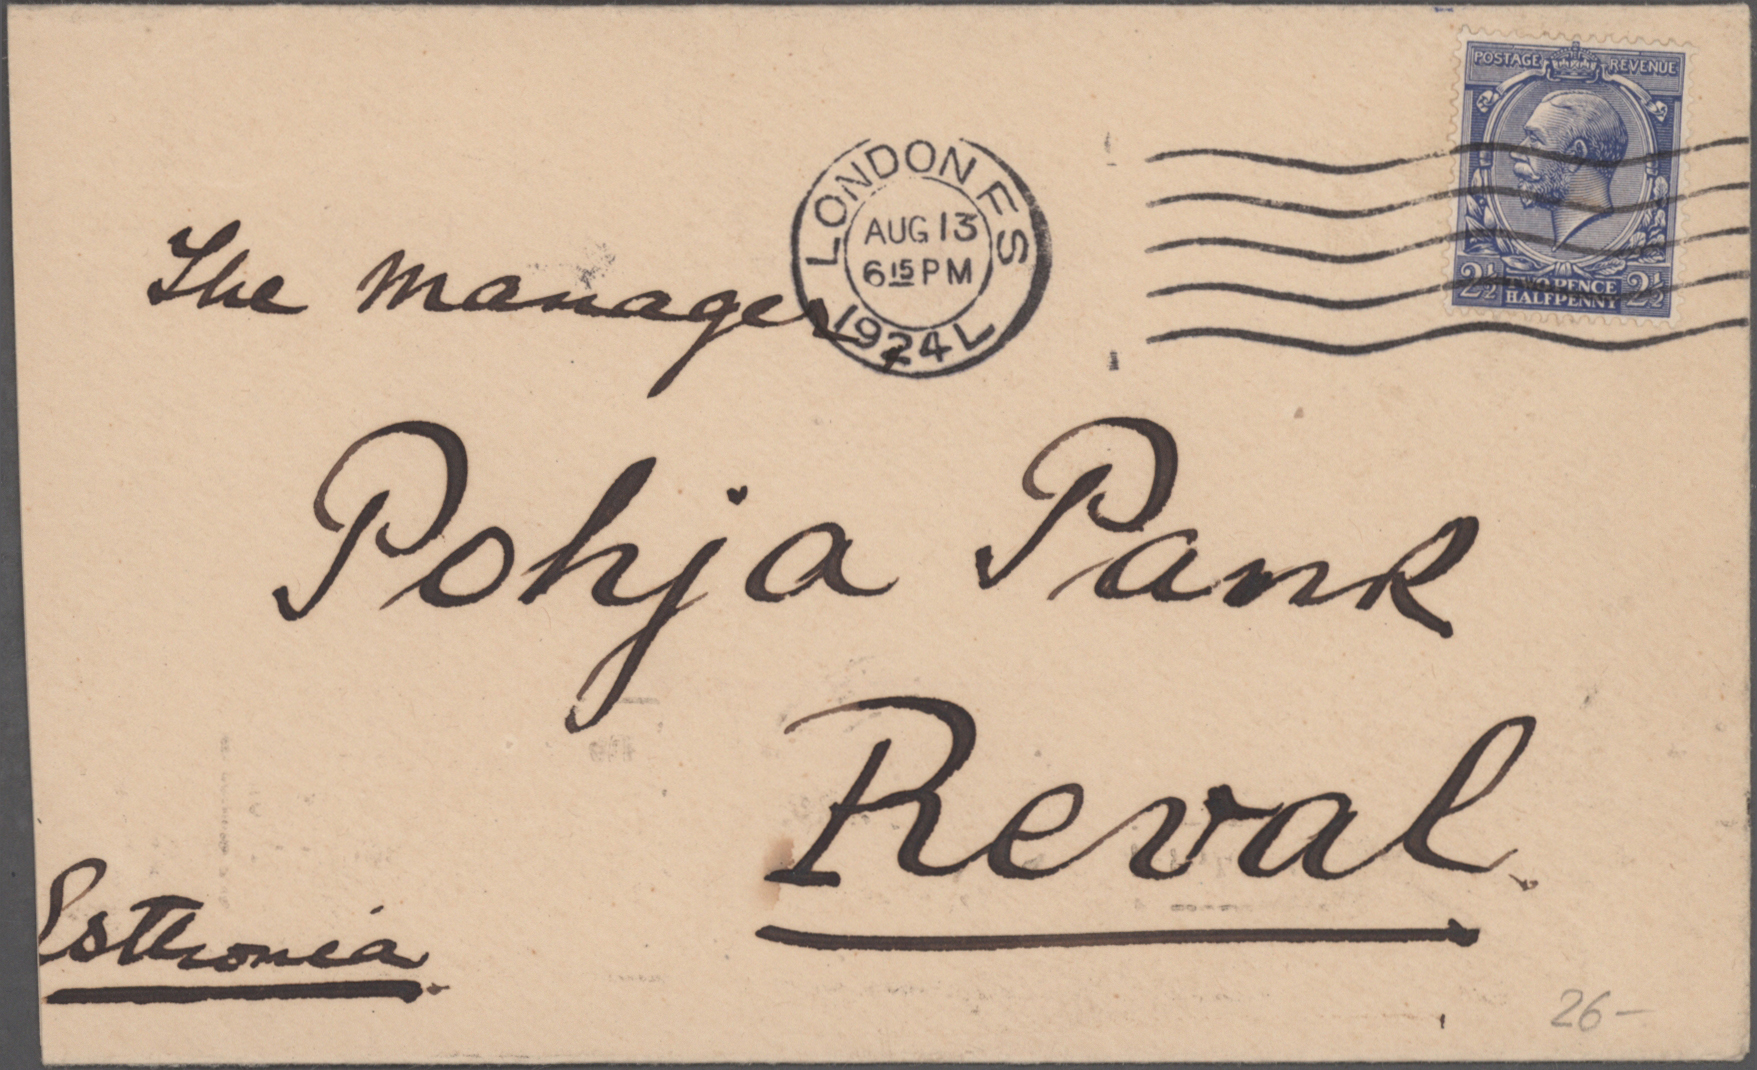 POSTAGE REVENUE
2½ TWO PENCE HALFPENNY 2½
LONDON F S
AUG 13
6 15 PM
1924 L
The Manager,
Pohja Pank
Reval.
Esthonia.
26-